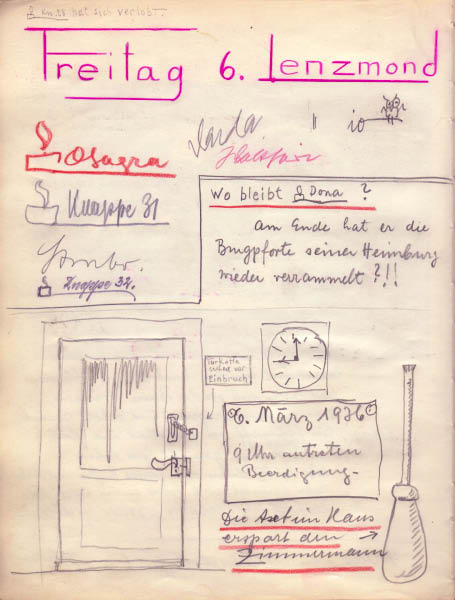 Kn.28 hat sich verlobt.
Freitag 6. Lenzmond
" io
Osagra
Knappe 31
Knappe 32.
Wo bleibt Dona ?
Am Ende hat er die
Burgpforte seiner Heimburg
wieder verrammelt ?!!
Türkette
schützt vor
Einbruch!
6. März 1936
9 Uhr antreten
Beerdigung-
Die Axt im Haus
erspart den →
Zimmermann